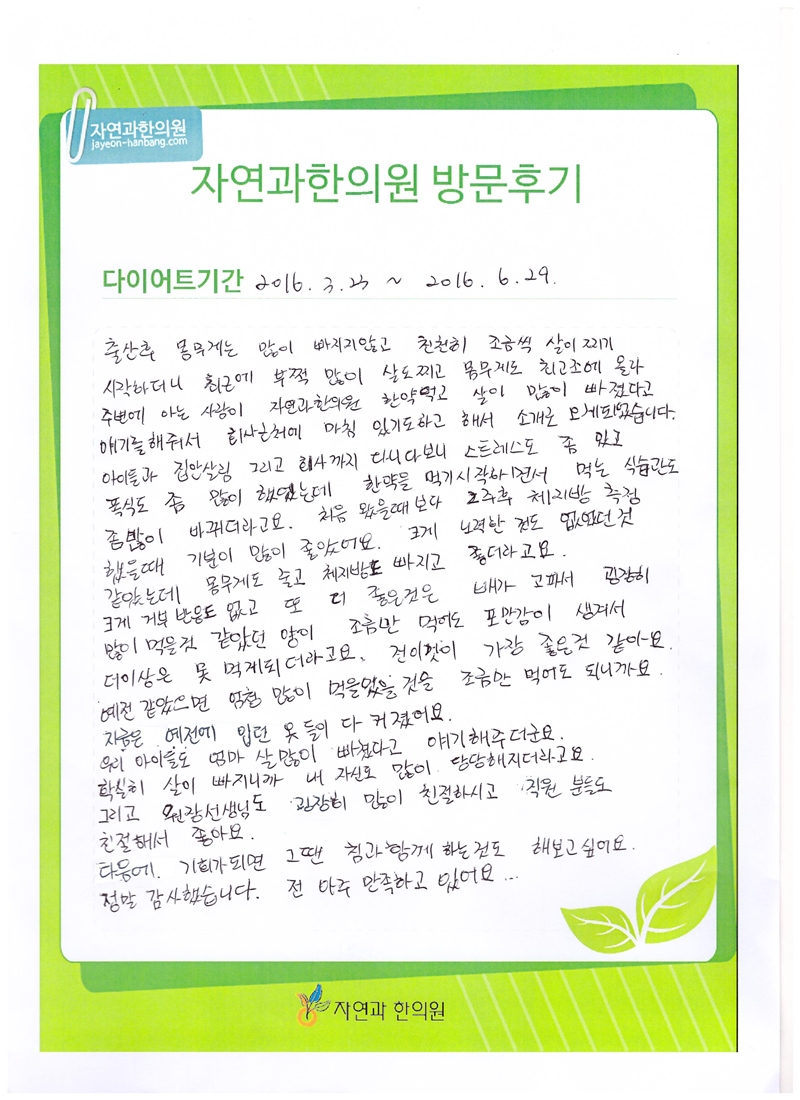 자연과한의원
jayeon-hanbang.com
자연과한의원 방문후기
다이어트기간 2016. 3. 23 ~ 2016. 6. 29.
출산후 몸무게는 많이 빠지지않고 천천히 조금씩 살이 찌기
시작하더니 최근에 부쩍 많이 살도찌고 몸무게도 최고조에 올라
주변에 아는 사람이 자연과한의원 한약먹고 살이 많이 빠졌다고
얘기를해줘서 회사근처에 마침 있기도하고 해서 소개로 오게되었습니다.
아이들과 집안살림 그리고 회사까지 다니다보니 스트레스도 좀 있고
폭식도 좀 많이 했었는데 한약을 먹기시작하면서 먹는 식습관도
좀많이 바뀌더라고요. 처음 왔을때보다 2주후 체지방 측정
했을때 기분이 많이 좋았어요. 크게 노력한 것도 없었던것
같았는데 몸무게도 줄고 체지방도 빠지고 좋더라고요.
크게 거부 반응도 없고 또 더 좋은것은 배가 고파서 굉장히
많이 먹을것 같았던 양이 조금만 먹어도 포만감이 생겨서
더이상은 못 먹게되더라고요. 전이것이 가장 좋은것 같아요.
예전 같았으면 엄청 많이 먹을었을것을 조금만 먹어도 되니까요.
지금은 예전에 입던 옷들이 다 커졌어요.
우리 아이들도 엄마 살많이 빠졌다고 얘기해주더군요.
확실히 살이 빠지니까 내 자신도 많이 당당해지더라고요.
그리고 원장선생님도 굉장히 많이 친절하시고 직원 분들도
친절해서 좋아요.
다음에. 기회가되면 그땐 침과 함께 하는것도 해보고싶어요.
정말 감사했습니다. 전 아주 만족하고 있어요...
자연과 한의원